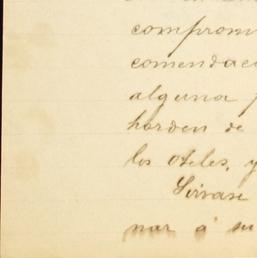 comprom
comendac
alguna
horden de
los oteles, y
Sirvase
nar á su